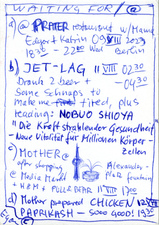 WAITING FOR / @
a) @ PRATER restaurant w/Mami
Edgar + Katrin 09 VIII 2023
18:30 - 22:00 Wall Berlin
b) JET-LAG II VIII 02:30
Drank 2 beer + - 04:30
Some Schnaps to
make me tired, plus
reading: NOBUO SHIOYA
"Die Kraft strahlender Gesundheit
- Neue Vitalität für Millionen Körper-
zellen
c) MOTHER @
after shopping Alexander-
@ Media Markt Platz
H&M + PULL & BEAR 11 VIII 17:00
d) Mother prepared CHICKEN 12 VIII
PAPRIKASH - sooo GOOD! 19:30